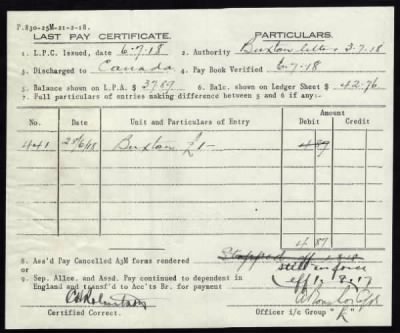 P.830-25M-21-2-18.
LAST PAY CERTIFICATE. PARTICULARS.
1. L.P.C. Issued, date 6-7-18 2. Authority Buxton letter 3-7-18
3. Discharged to Canada 4. Pay Book Verified 6-7-18
5. Balance shown on L.P.A. $ 37.89 6. Balc. shown on Ledger Sheet $ 42.76
7. Full particulars of entries making difference between 5 and 6 if any:-
No. Date Unit and Particulars of Entry Amount
Debit Credit
441 28/6/18 Buxton £1- 4.87
4.87
8. Ass'd Pay Cancelled A3M forms rendered Stopped eff
or still in force
9. Sep. Allce. and Assd. Pay continued to dependent in eff
England and transf'd to Acc'ts Br. for payment
Certified Correct. Officer i/c Group "K"